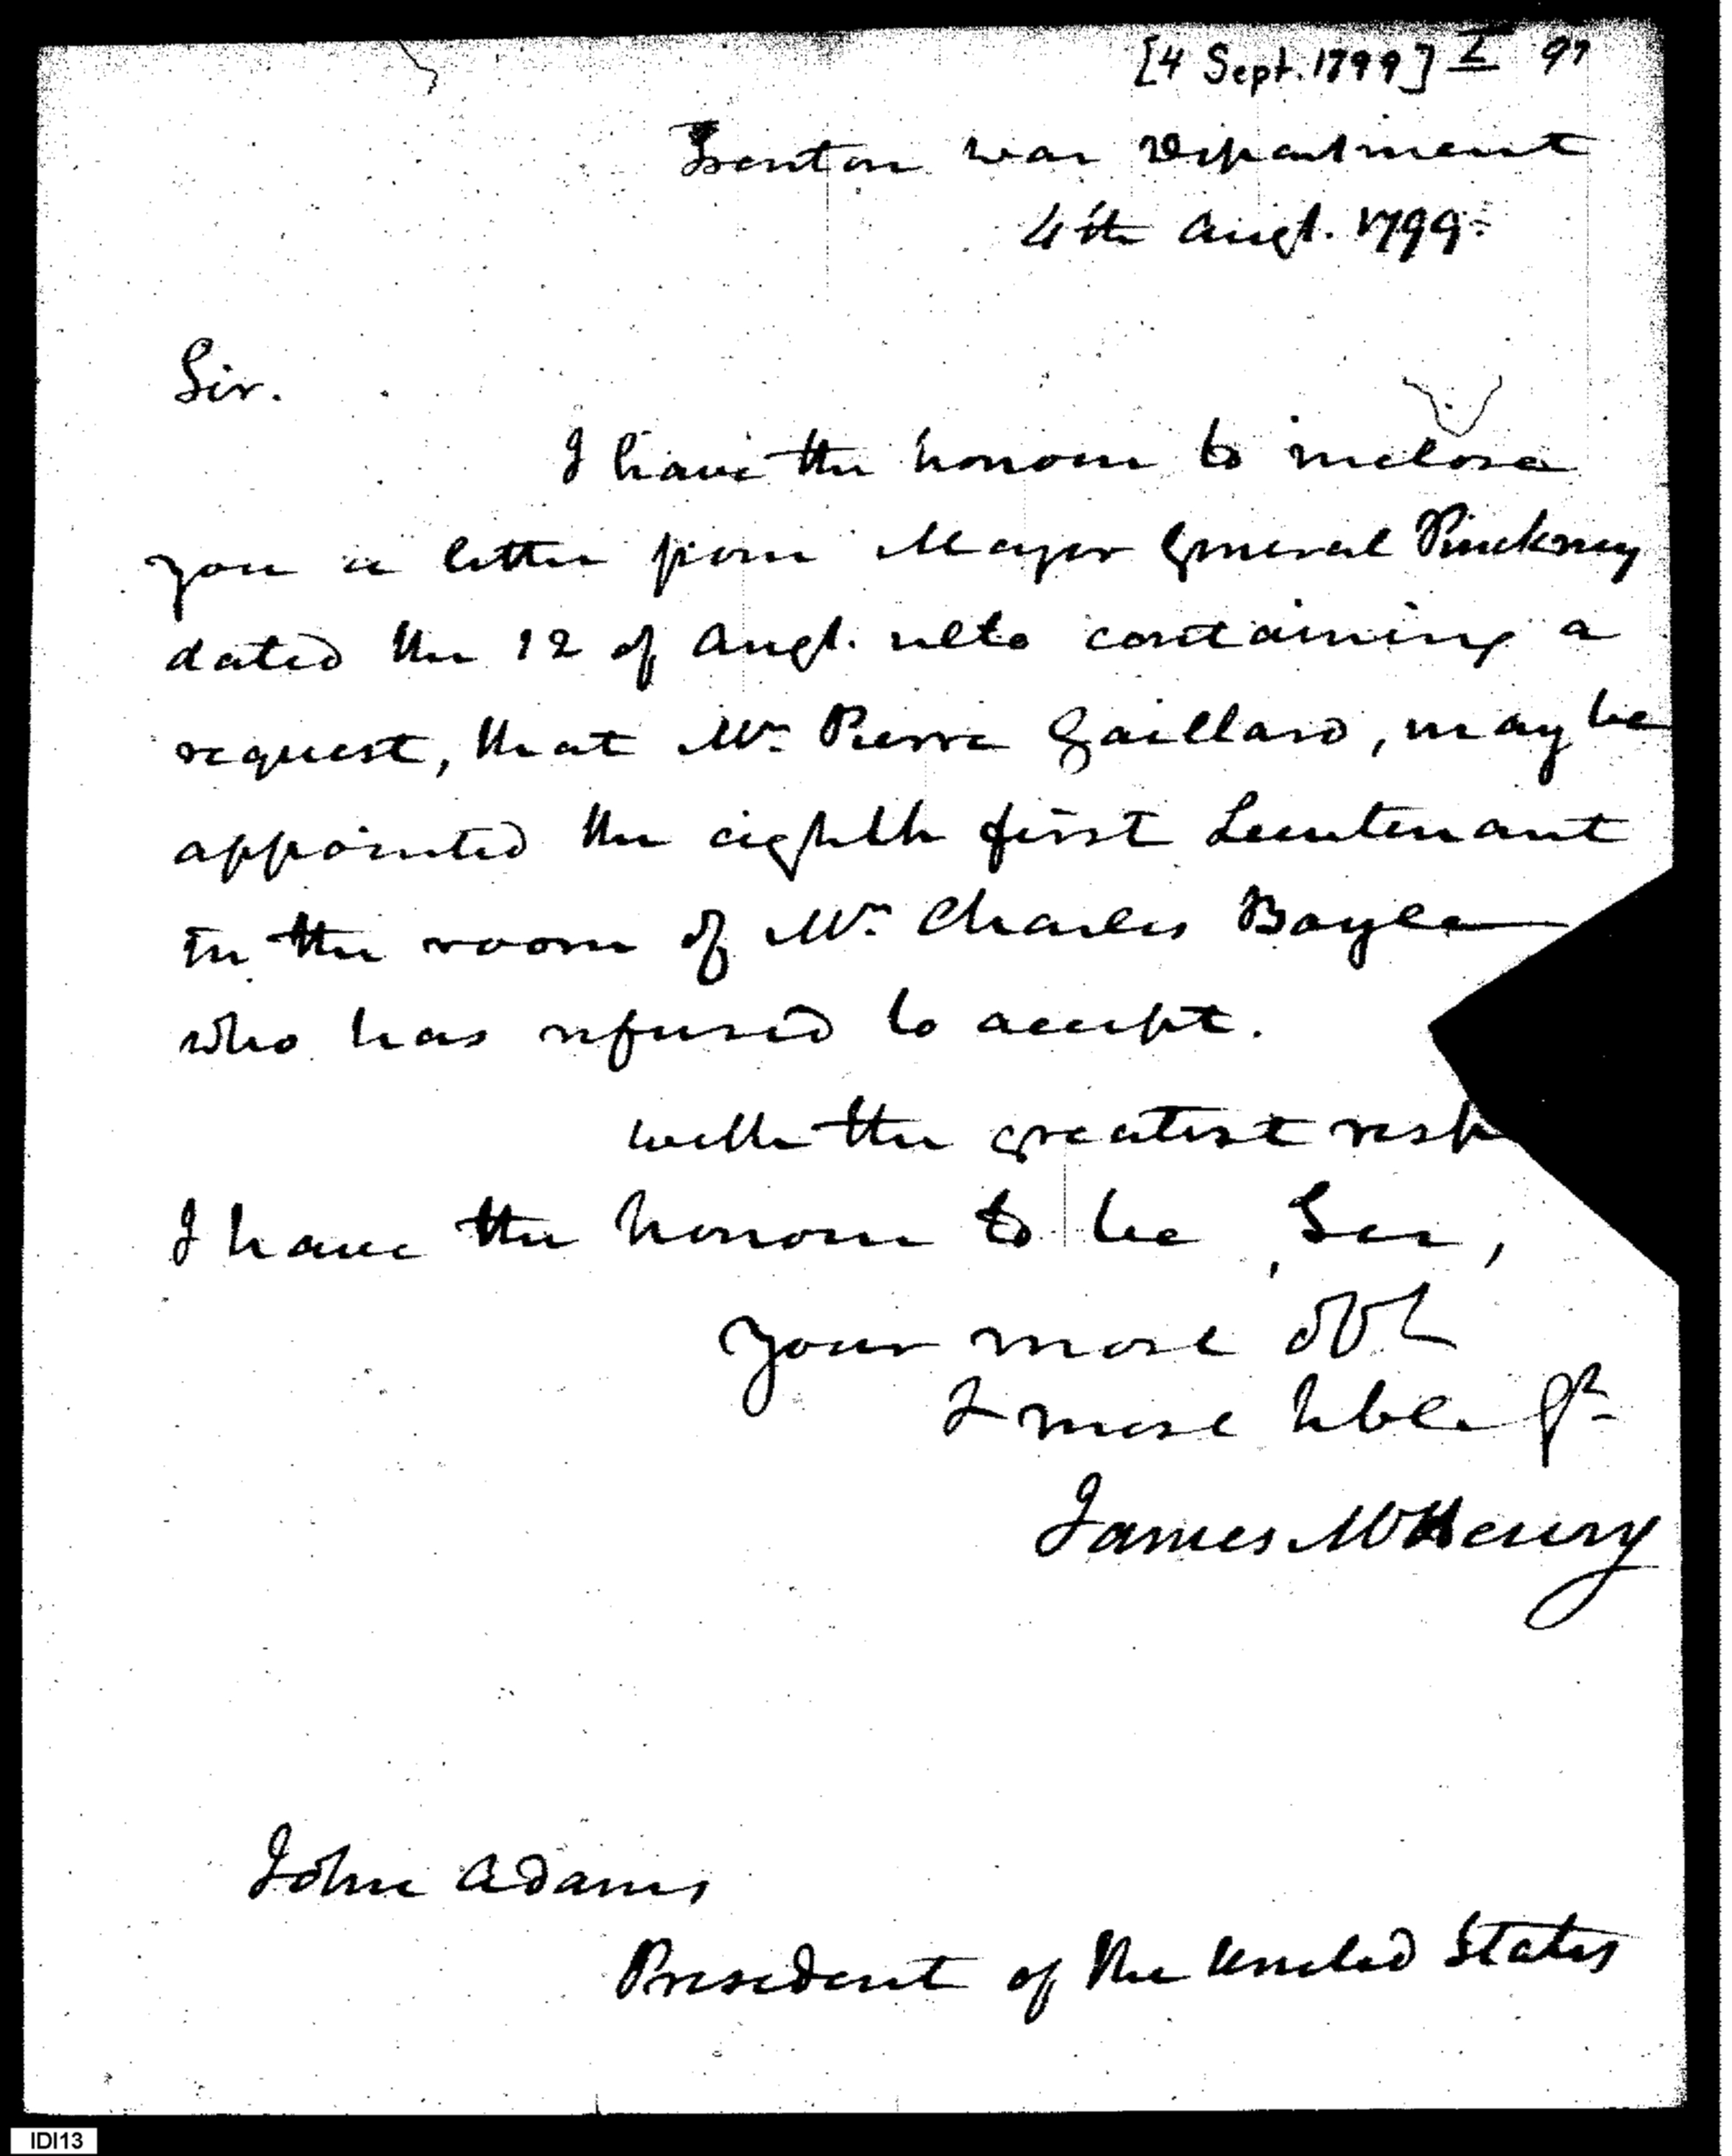 [4 Sept. 1799] I 97
Trenton War Department
4th Augt. 1799.
Sir.
I have the honour to inclose
you a letter from Major General Pinckney
dated the 12 of Augt. ulto containing a
request, that Mr. Pierre Gaillard, may be
appointed the eighth first Lieutenant
in the room of Mr. Charles Boyle
who has refused to accept.
with the greatest resp
I have the honour to be, Sir,
your most obt
& most hble St
James McHenry
John Adams
President of the United States
IDI13